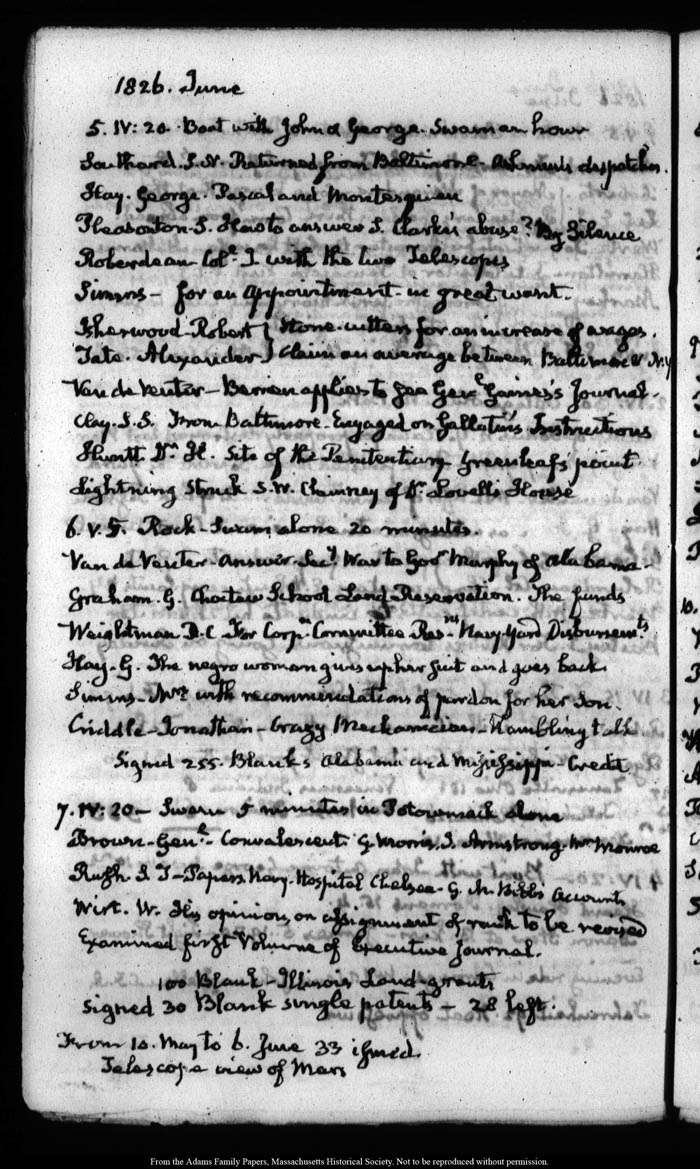 1826. June
5. IV: 20. Boat with John & George. Swam an hour
Southard. S. N. Returned from Baltimore. despatches.
Hay. George. Pascal and Montesquieu
Pleasonton. S. How to answer S. Clarke's abuse? By Silence
Roberdeau. Colᵉ. I. with the two Telescopes
Simms — for an appointment. in great want.
Isherwood. Robert } Stone-cutters for an increase of wages.
Tate. Alexander } claim an average between Baltimore & N.Y
Van de Venter — Berrien applies to see Genˡ Gaines's Journal.
Clay. S. S. From Baltimore. Engaged on Gallatin's Instructions
Huntt Dʳ. H. Site of the Penitentiary Greenleaf's point
Lightning Struck S.W. Chimney of Dʳ. Lovell's House
6. V. 5. Rock. Swam alone 20 minutes.
Van de Venter. Answer. Secʸ. War to Govʳ Murphy of Alabama.
Graham. G. Choctaw School Land Reservation. The funds
Weightman D.C. For Corpⁿ Committee Navy-Yard Disbursemᵗˢ
Hay. G. The negro woman gives up her suit and goes back.
Simms. Mʳˢ with recommendations of pardon for her Son.
Criddle. Jonathan. Crazy Mechanician. Rambling talk
Signed 255. Blanks Alabama and Mississippi. Credit
7. IV: 20 — Swam 5 minutes in Potowmack alone
Brown. Genˡ. Convalescent. G. Morris. J. Armstrong. Mʳ Monroe
Rush. I. T — Papers Navy. Hospital Chelsea. G. M. Bibbs accounts
Wirt. W. His opinion, on assignment of rank to be revised
Examined first Volume of Executive Journal.
100 Blank. Illinois Land-grants
Signed 30 Blank single patents — 28 left.
From 10. May to 6. June 33 issued.
Telescope view of Mars
From the Adams Family Papers, Massachusetts Historical Society. Not to be reproduced without permission.